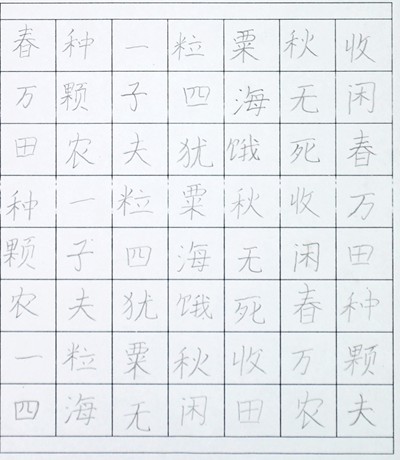 春种一粒粟秋收
万颗子四海无闲
田农夫犹饿死春
种一粒粟秋收万
颗子四海无闲田
农夫犹饿死春种
一粒粟秋收万颗
四海无闲田农夫